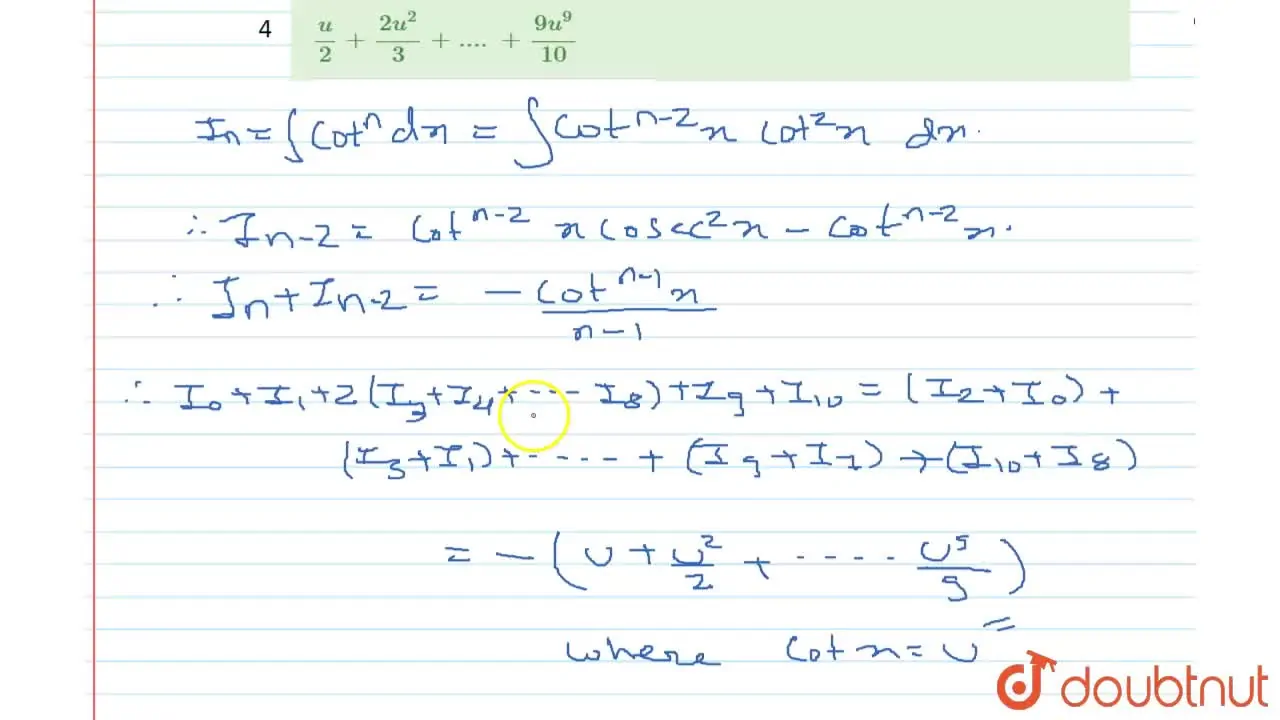 4 u/2 + 2u²/3 + .... + 9u⁹/10
Iₙ = ∫ Cotⁿ dx = ∫ Cotⁿ⁻² x cot² x dx.
∴ Iₙ₋₂ = Cotⁿ⁻² x cosec² x − Cotⁿ⁻² x.
∴ Iₙ + Iₙ₋₂ = − Cotⁿ⁻¹ x / n−1
∴ I₀ + I₁ + 2(I₃ + I₄ + ---- I₈) + I₉ + I₁₀ = (I₂ + I₀) +
(I₃ + I₁) + ----- + (I₉ + I₇) + (I₁₀ + I₈)
= − (u + u²/2 + ----- u⁹/9)
where Cot x = u
doubtnut